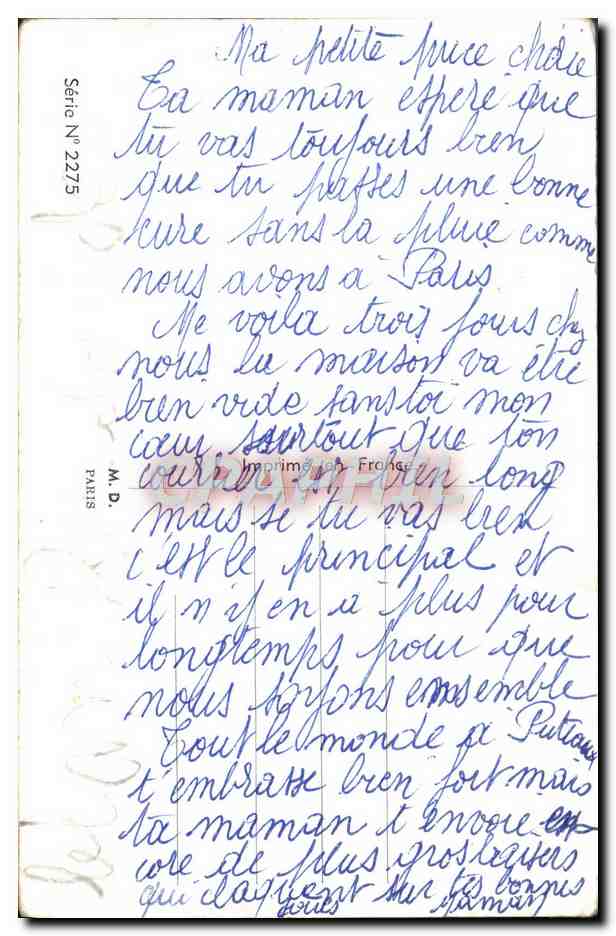 Ma petite puce chérie
Ta maman espere que
tu vas toujours bien
que tu passes une bonne
cure sans la pluie comme
nous avons a Paris
Me voila trois jours chez
nous la maison va être
bien vide sans toi mon
cœur surtout que ton
courrier est bien long
mais si tu vas bien
c'est le principal et
il n'y en a plus pour
longtemps pour que
nous soyons ensemble
Tout le monde a Puteaux
t'embrasse bien fort mais
ta maman t envoie en
core de plus gros baisers
qui claquent sur tes bonnes
joues Maman
Série N° 2275
Imprimé en France
M. D.
PARIS
CPAPHIL